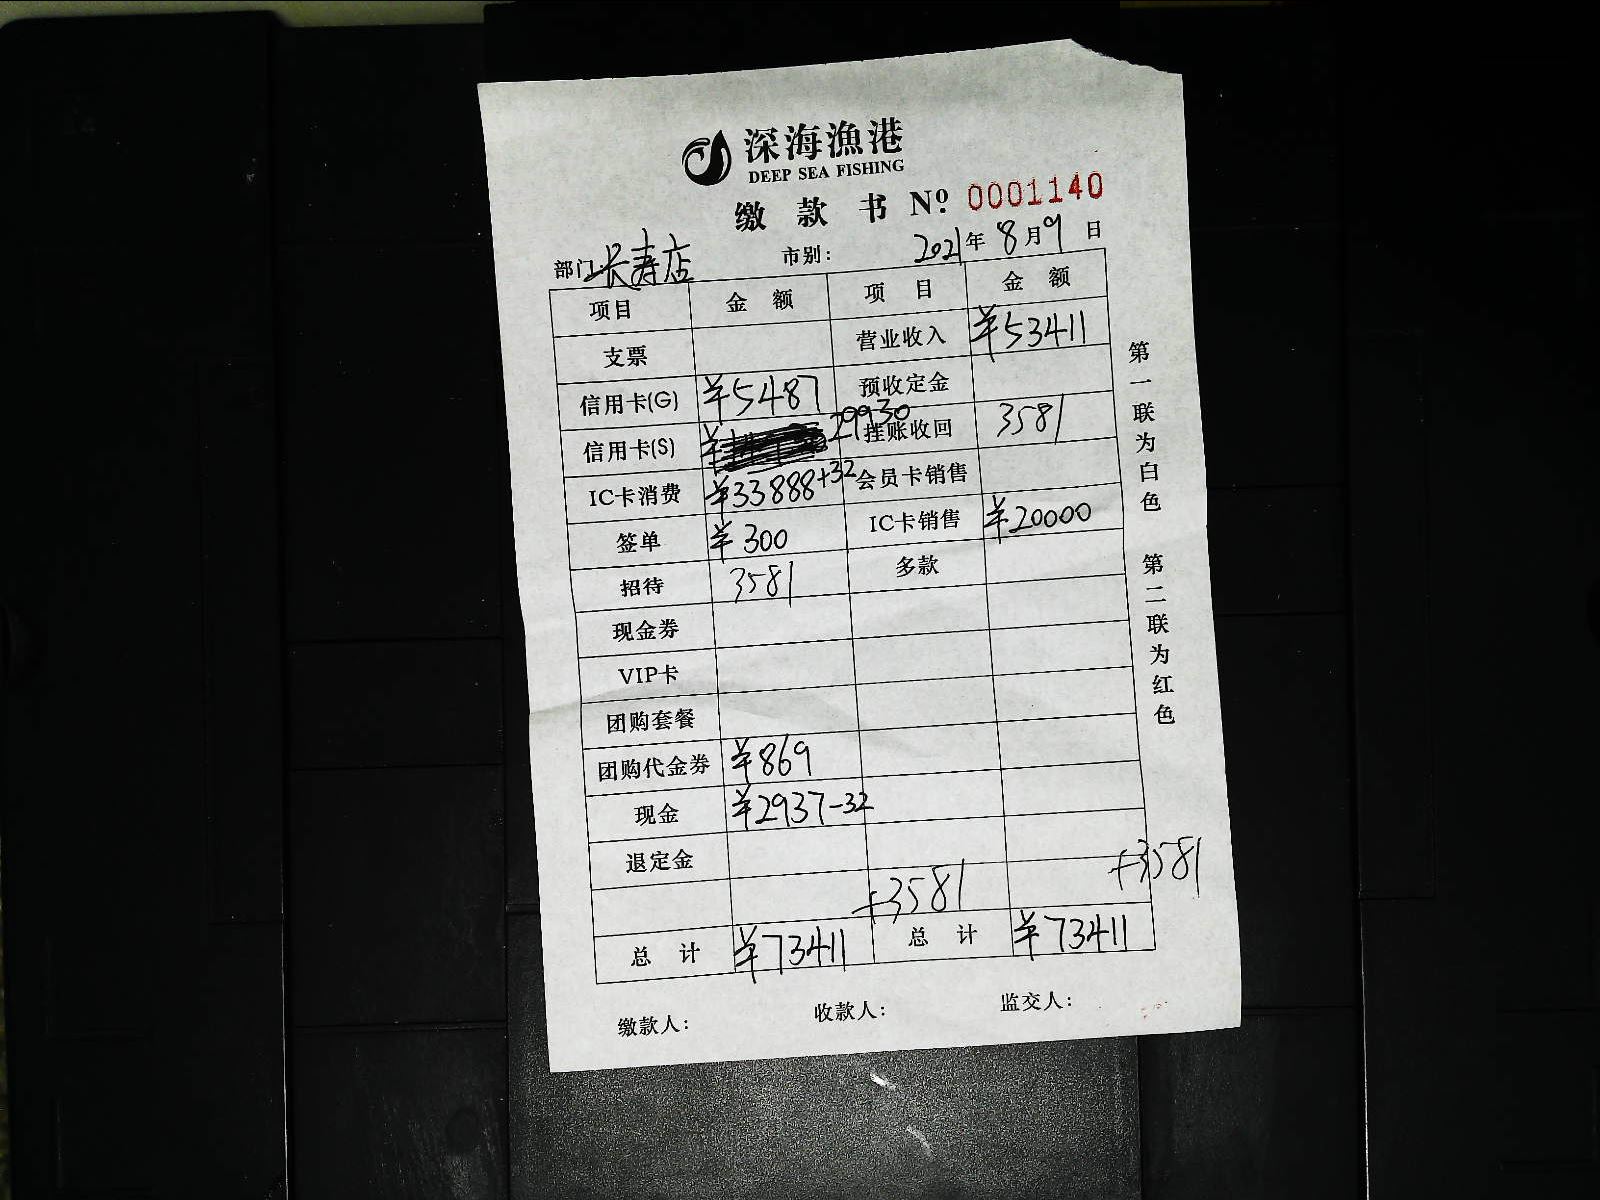 深海漁港
DEEP SEA FISHING
缴款书 Nº: 0001140
部门: 长寿店 市别: 2021年8月9日
项目 金额 项目 金额
支票 营业收入 ¥53411
信用卡(G) ¥5487 预收定金
信用卡(S) ¥ 29930 挂账收回 3581
IC卡消费 ¥33888+32 会员卡销售
签单 ¥300 IC卡销售 ¥20000
招待 3581 多款
现金券
VIP卡
团购套餐
团购代金券 ¥869
现金 ¥2937-32
退定金
+3581 +3581
总计 ¥73411 总计 ¥73411
缴款人: 收款人: 监交人:
第一联为白色 第二联为红色